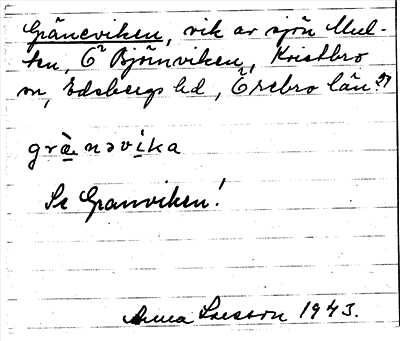 Gräneviken, vik av sjön Mul-
ten, Ö Björnviken, Kvistbro
sn, Edsbergs hd, Örebro län.
græ̀nəvika
Se Granviken!
Anna Larsson 1943.